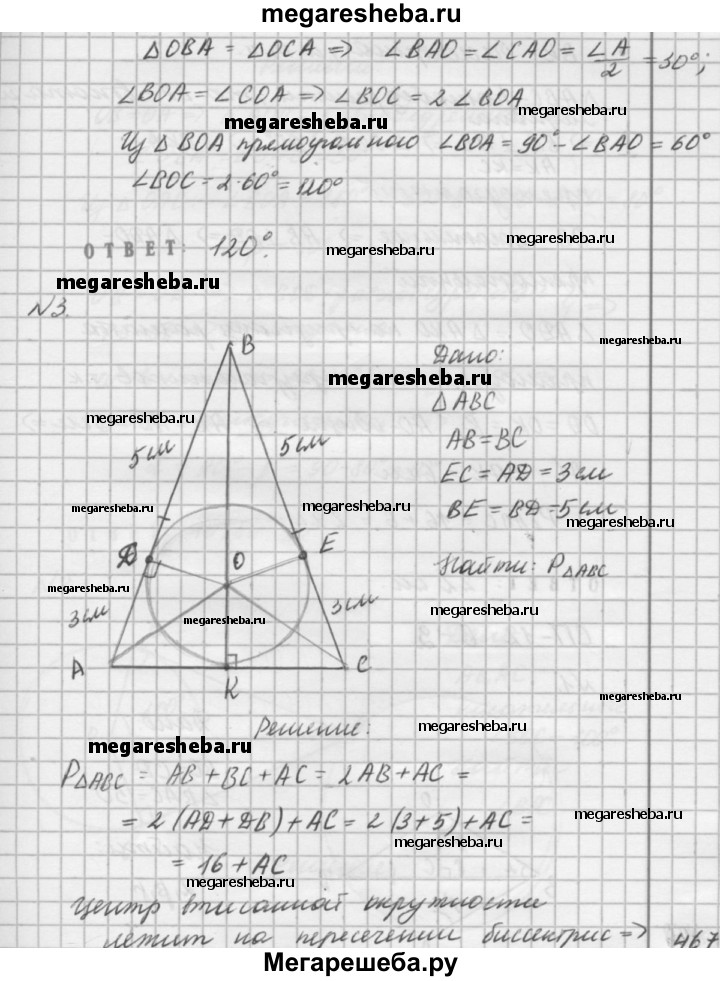 megaresheba.ru
ΔOBA = ΔOCA => ∠BAO = ∠CAO = ∠A/2 = 30°;
∠BOA = ∠COA => ∠BOC = 2 ∠BOA
megaresheba.ru
Из Δ BOA прямоугольного ∠BOA = 90° - ∠BAO = 60°
megaresheba.ru
∠BOC = 2·60° = 120°
megaresheba.ru
ОТВЕТ: 120°.
megaresheba.ru
megaresheba.ru
N3.
megaresheba.ru
B
Дано:
megaresheba.ru
ΔABC
megaresheba.ru
5 см
5 см
AB = BC
EC = AD = 3 см
megaresheba.ru
megaresheba.ru
BE = BD = 5 см
megaresheba.ru
Д
O
E
Найти: PΔABC
megaresheba.ru
3 см
3 см
megaresheba.ru
megaresheba.ru
A
K
C
megaresheba.ru
Решение:
megaresheba.ru
megaresheba.ru
PΔABC = AB + BC + AC = 2AB + AC =
= 2 (AD + DB) + AC = 2 (3 + 5) + AC =
megaresheba.ru
megaresheba.ru
= 16 + AC
megaresheba.ru
Центр вписанной окружности
megaresheba.ru
лежит на пересечении биссектрис =>
467
Мегарешеба.ру